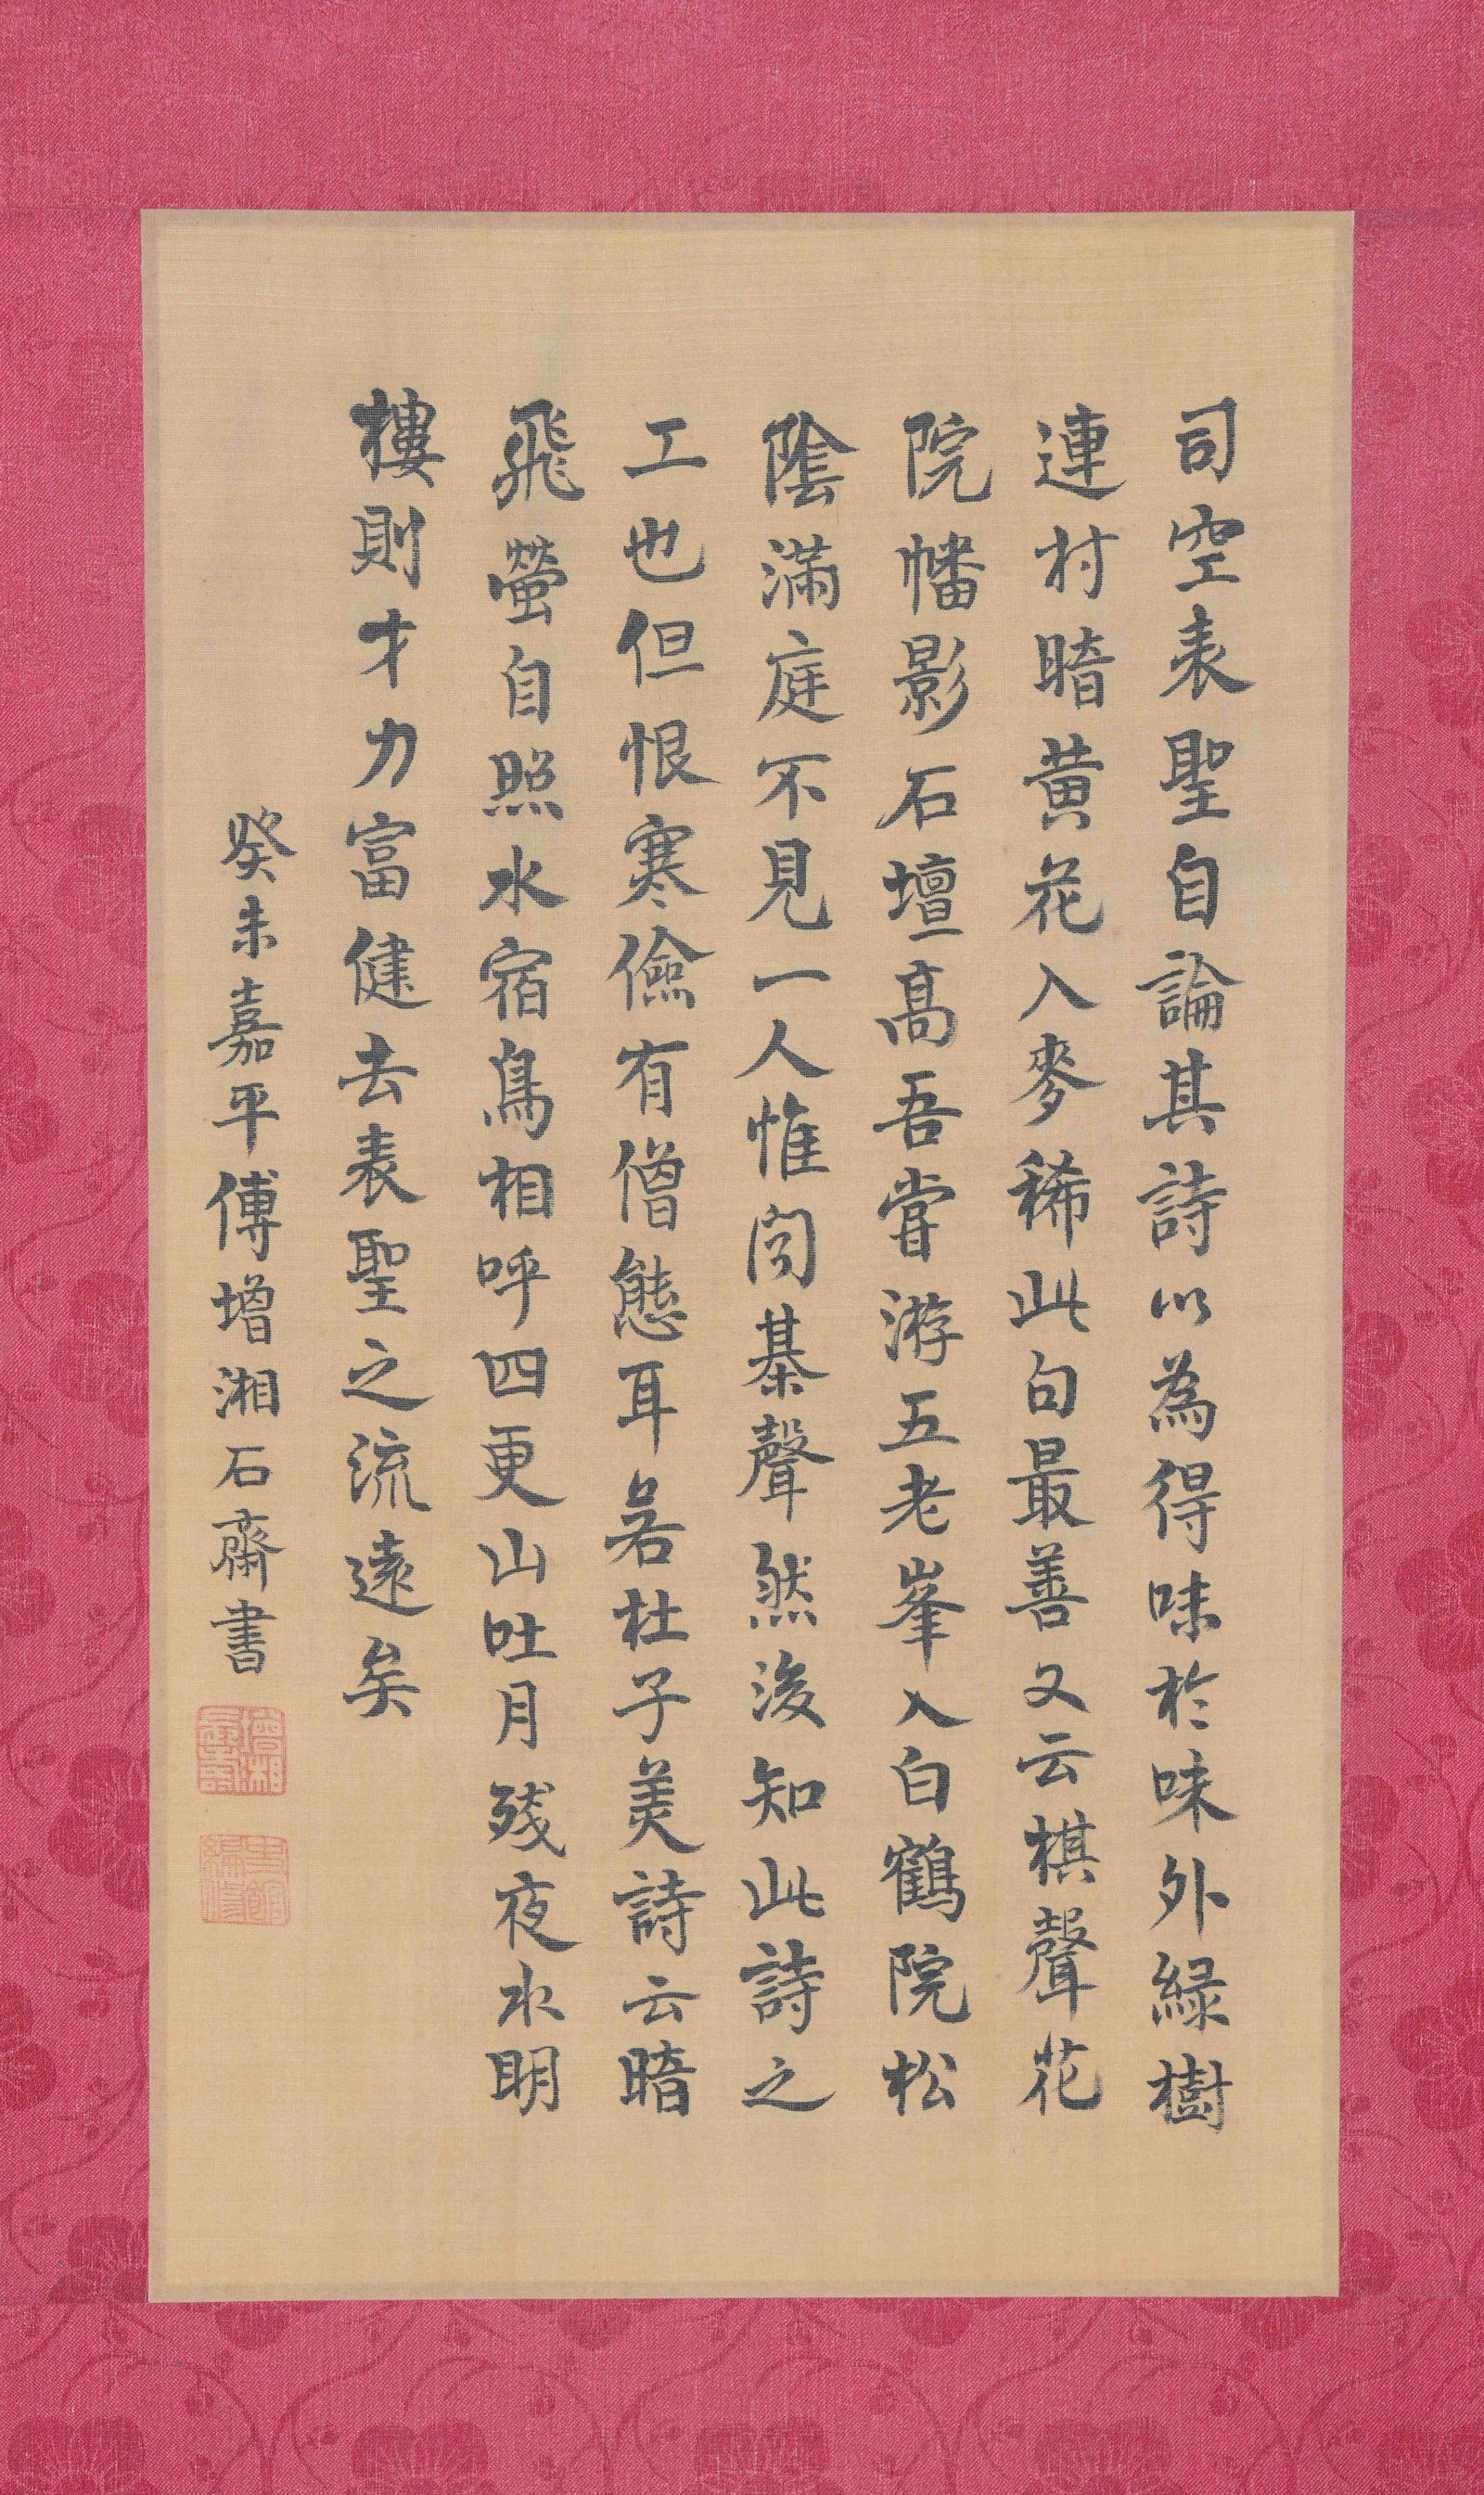 司空表聖自論其詩以為得味於味外綠樹
連村暗黃花入麥稀此句最善又云棋聲花
院幡影石壇高吾嘗游五老峯入白鶴院松
陰滿庭不見一人惟聞棊聲然後知此詩之
工也但恨寒儉有僧態耳若杜子美詩云暗
飛螢自照水宿鳥相呼四更山吐月殘夜水明
樓則才力富健去表聖之流遠矣
癸未嘉平傅增湘石齋書
增湘長壽
史館編修